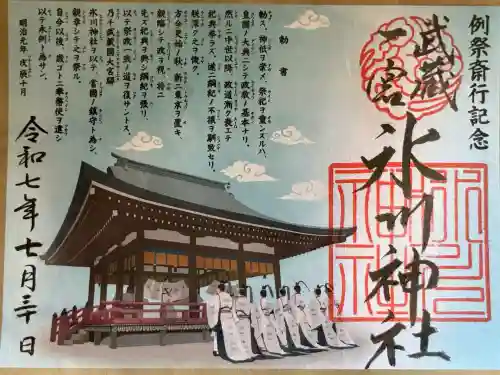 例祭斎行記念
武蔵
一宮
氷川神社
氷川
神社
勅書
勅ス、神祇ヲ崇メ、祭祀ヲ重ンズルハ、
皇國ノ大典ニシテ政敎ノ基本ナリ。
然ルニ中世以降、政道漸ク衰エテ
祀典舉ラズ、遂ニ綱紀ノ不振ヲ馴致セリ。
朕深ク之ヲ慨ク。
方今更始ノ秋、新ニ東京ヲ置キ、
親臨シテ政ヲ視、將ニ
先ズ祀典ヲ興シ綱紀ヲ張リ、
以テ祭政一致ノ道ヲ復サントス。
乃チ武蔵國大宮驛ノ
氷川神社ヲ以テ、當國ノ鎮守ト為シ、
親幸シテ之ヲ祭ル。
自今以後、歳ゴトニ奉幣使ヲ遣シ
以テ永例ト為サン。
明治元年 戊辰十月
令和七年七月三十日